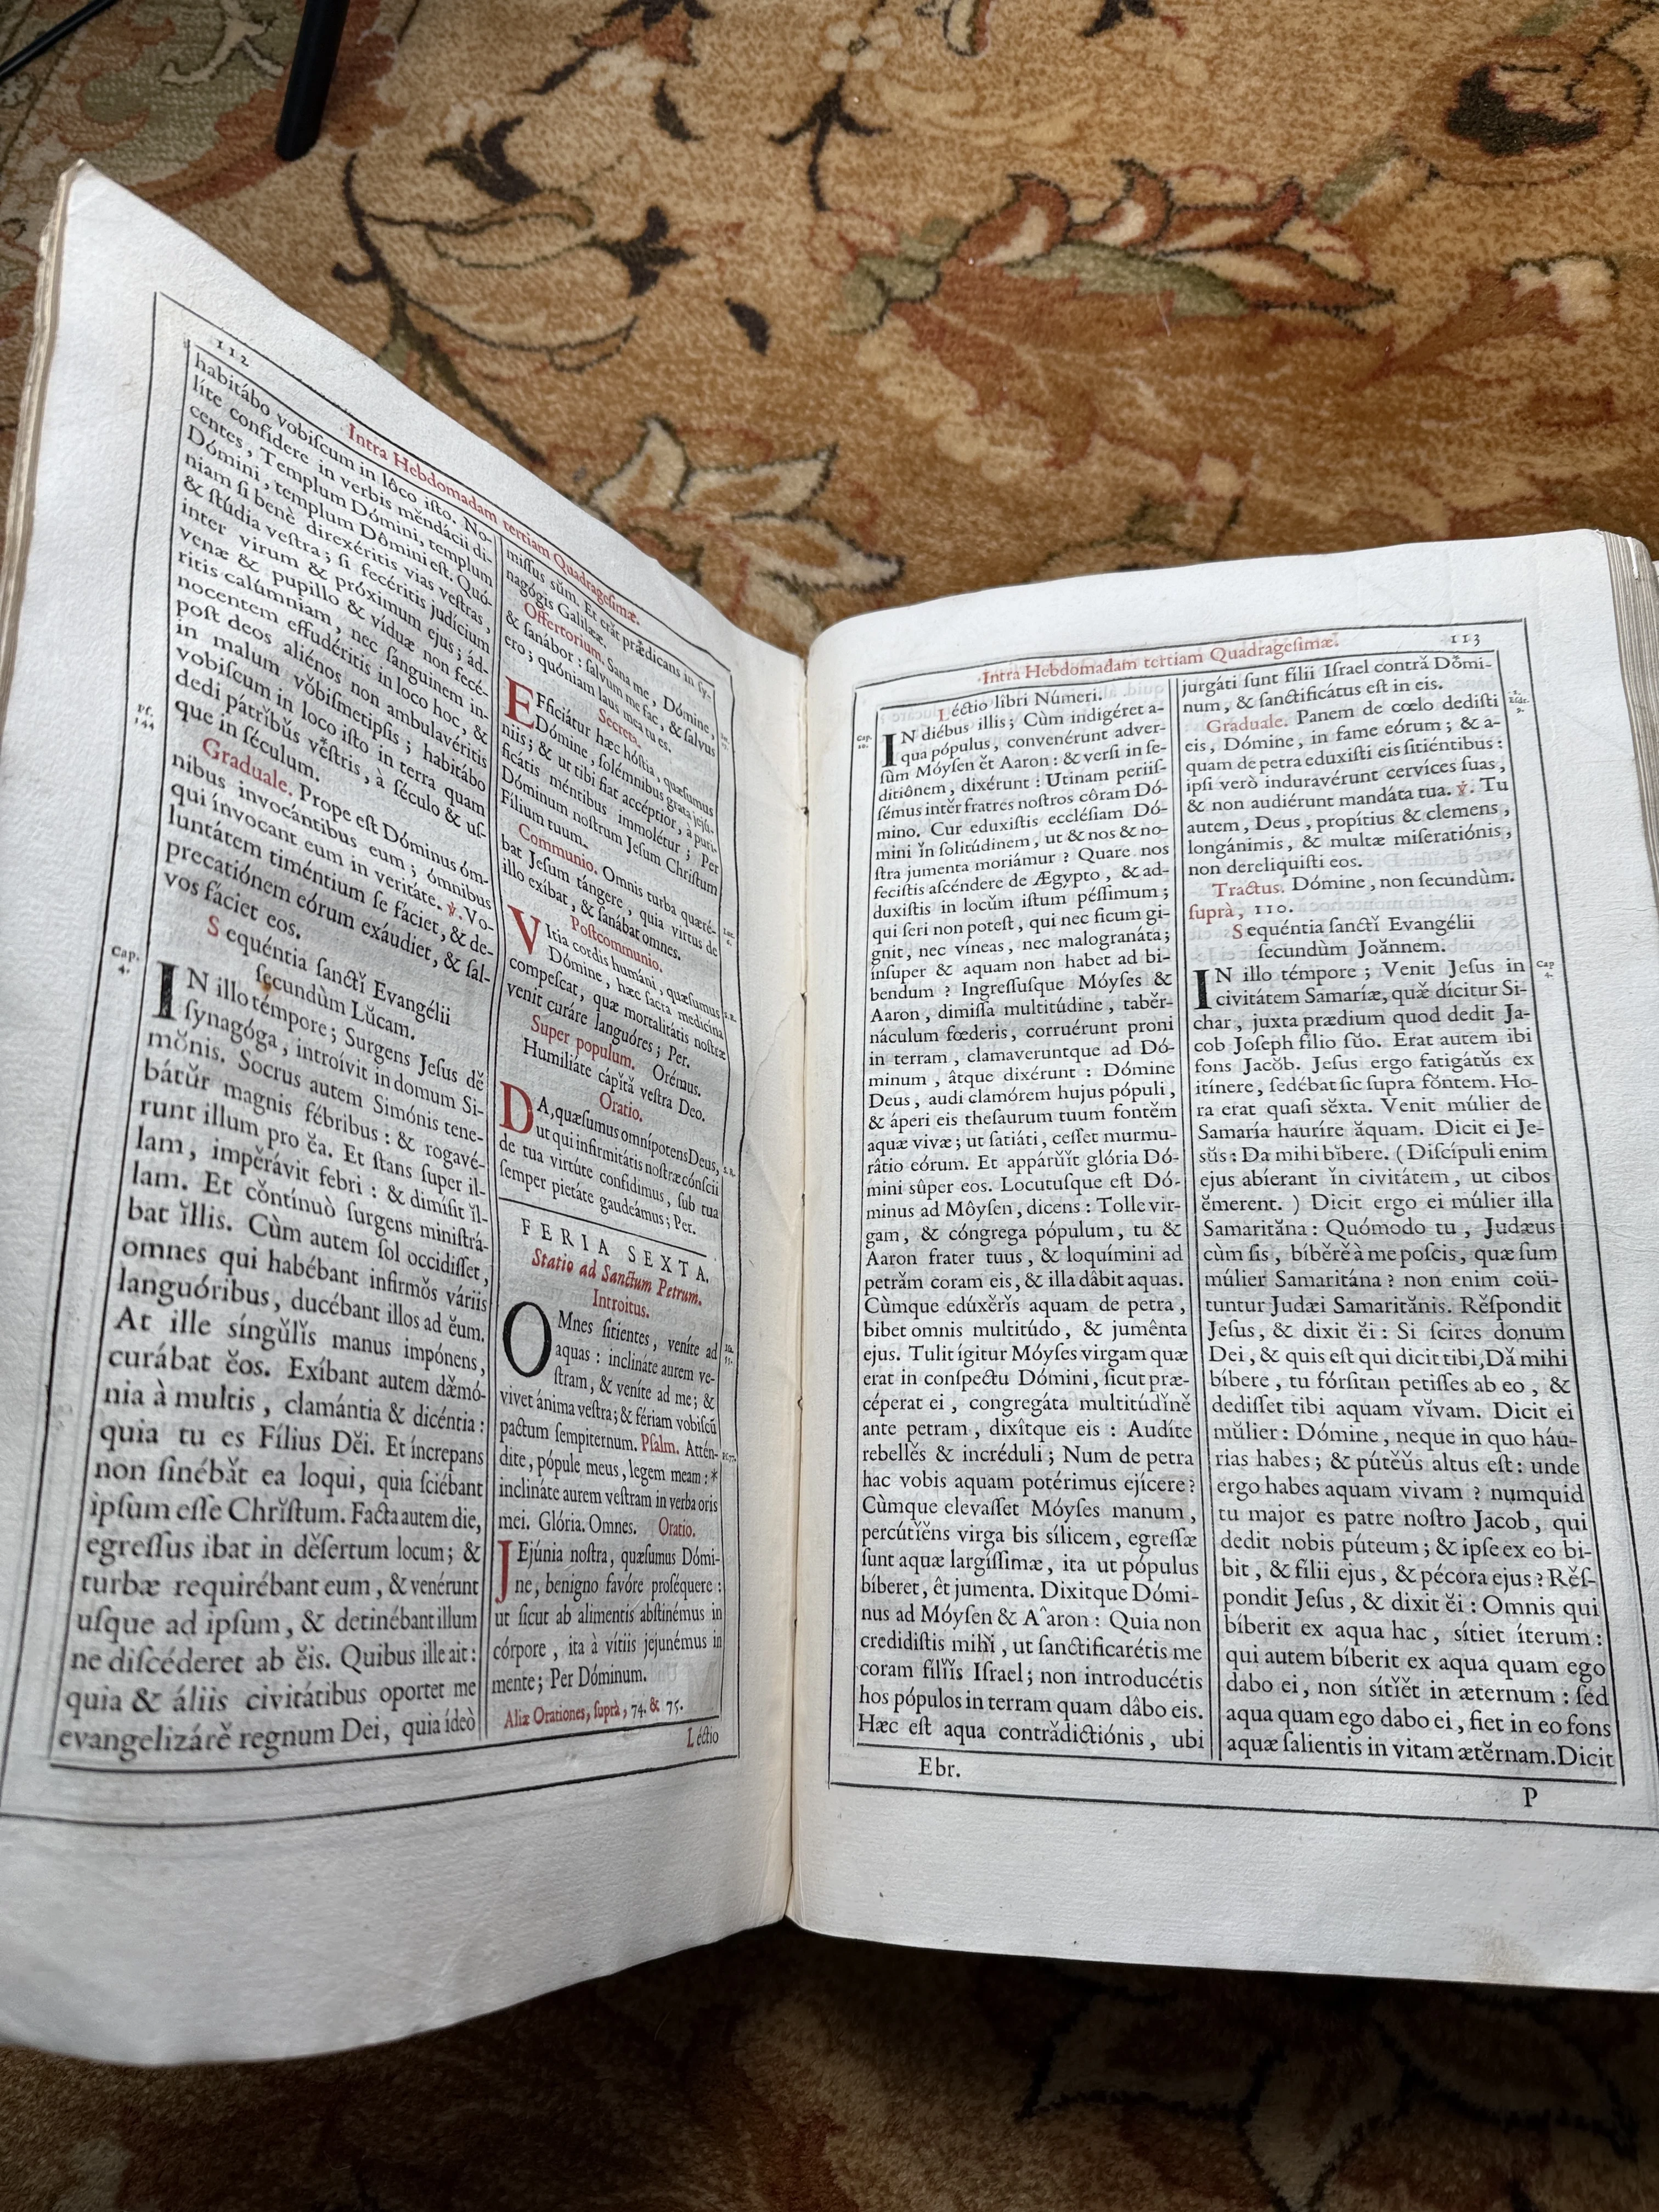 112
Intra Hebdomadam tertiam Quadragesimæ.
habitábo vobiſcum in lôco iſto. No-
líte confídere in verbis mĕndácii di-
centes, Templum Dómini, templum
Dómini, templum Dômini eſt. Quó-
niam ſi benè direxéritis vias veſtras,
& ſtúdia veſtra; ſi fecéritis judícium
inter virum & próximum ejus; ád-
venæ & pupillo & víduæ non fecé-
ritis calúmniam, nec ſanguinem in-
nocentem effudéritis in loco hoc, &
poſt deos aliénos non ambulavéritis
in malum vŏbiſmetipſis; habitábo
vobiſcum in loco iſto in terra quam
dedi pátrĭbŭs vĕſtris, à ſéculo & uſ-
que in ſéculum.
Pſ. 144
Graduale. Prope eſt Dóminus óm-
nibus invocántibus eum; ómnibus
qui ínvocant eum in veritáte. ℣. Vo-
luntátem timéntium ſe fáciet, & de-
precatiónem eórum exáudiet, & ſal-
vos fáciet eos.
Sequéntia ſanctĭ Evangélii
ſecundùm Lŭcam.
Cap. 4.
IN illo témpore; Surgens Jeſus dĕ
ſynagóga, introívit in domum Si-
mŏnis. Socrus autem Simónis tene-
bátŭr magnis fébribus: & rogavé-
runt illum pro ĕa. Et ſtans ſuper il-
lam, impĕrávit febri: & dimíſit ĭl-
lam. Et cŏntínuò ſurgens miniſtrá-
bat ĭllis. Cùm autem ſol occidiſſet,
omnes qui habébant infirmŏs váriis
languóribus, ducébant illos ad ĕum.
At ille síngŭlĭs manus impónens,
curábat ĕos. Exíbant autem dæ̆mó-
nia à multis, clamántia & dicéntia:
quia tu es Fílius Dĕi. Et íncrepans
non ſinébăt ea loqui, quia ſciébant
ipſum eſſe Chrĭſtum. Facta autem die,
egreſſus ibat in dĕſertum locum; &
turbæ requirébant eum, & venérunt
uſque ad ipſum, & detinébant illum
ne diſcéderet ab ĕis. Quibus ille ait:
quia & áliis civitátibus oportet me
evangelizárĕ regnum Dei, quia ídeò
miſſus sŭm. Et erăt prædicans in ſy-
nagógis Galilææ.
Offertorium. Sana me, Dómine,
& ſanábor: ſalvum me fac, & ſalvus
ero; quóniam laus mea tu es.
Secreta.
EFficiátur hæc hóſtia, quæſumus
Dómine, ſolémnibus grata jejú-
niis; & ut tibi fiat accéptior, à puri-
ficátis méntibus immolétur; Per
Dóminum noſtrum Jeſum Chriſtum
Fílium tuum.
Communio. Omnis turba quæré-
bat Jeſum tángere, quia virtus de
illo exíbat, & ſanábat omnes.
Poſtcommunio.
VItia cordis humáni, quæſumus
Dómine, hæc ſacra medicína
compeſcat, quæ mortalitátis noſtræ
venit curáre languóres; Per.
Super populum. Orémus.
Humiliáte cápĭtă veſtra Deo.
Oratio.
DA, quæſumus omnípotens Deus,
ut qui infirmitátis noſtræ cónſcii
de tua virtúte confídimus, ſub tua
ſemper pietáte gaudeámus; Per.
FERIA SEXTA.
Statio ad Sanctum Petrum.
Introitus.
OMnes ſitientes, veníte ad
aquas: inclináte aurem ve-
ſtram, & veníte ad me; &
vivet ánima veſtra; & fériam vobiſcū
pactum ſempiternum. Pſalm. Attén-
dite, pópule meus, legem meam: *
inclináte aurem veſtram in verba oris
mei. Glória. Omnes. Oratio.
JEjúnia noſtra, quæſumus Dómi-
ne, benigno favóre proſéquere:
ut ſicut ab alimentis abſtinémus in
córpore, ita à vítiis jejunémus in
mente; Per Dóminum.
Aliæ Orationes, ſuprà, 74. & 75.
Léctio
Intra Hebdomadam tertiam Quadrageſimæ.
113
Léctio libri Númeri.
Cap. 20.
IN diébus illis; Cùm indigéret a-
qua pópulus, convenérunt adver-
ſùm Móyſen ĕt Aaron: & verſi in ſe-
ditiônem, dixérunt: Utinam periiſ-
ſémus intĕr fratres noſtros côram Dó-
mino. Cur eduxíſtis ecclésiam Dó-
mini ĭn ſolitúdinem, ut & nos & no-
ſtra jumenta moriámur? Quare nos
feciſtis aſcéndere de Ægypto, & ad-
duxíſtis in locŭm iſtum péſſimum;
qui ſeri non poteſt, qui nec ficum gi-
gnit, nec víneas, nec malogranáta;
ínſuper & aquam non habet ad bi-
bendum? Ingreſſuſque Móyſes &
Aaron, dimiſſa multitúdine, tabĕr-
náculum fœderis, corruérunt proni
in terram, clamaveruntque ad Dó-
minum, âtque dixérunt: Dómine
Deus, audi clamórem hujus pópuli,
& áperi eis theſaurum tuum fontĕm
aquæ vivæ; ut ſatiáti, ceſſet murmu-
râtio eórum. Et appárŭĭt glória Dó-
mini sûper eos. Locutuſque eſt Dó-
minus ad Môyſen, dicens: Tolle vir-
gam, & cóngrega pópulum, tu &
Aaron frater tuus, & loquímini ad
petrăm coram eis, & illa dâbit aquas.
Cùmque edúxĕrĭs aquam de petra,
bibet omnis multitúdo, & jumênta
ejus. Tulit ígitur Móyſes virgam quæ
erat in conſpectu Dómini, ſicut præ-
céperat ei, congregáta multitúdĭnĕ
ante petram, dixîtque eis: Audíte
rebellĕs & incréduli; Num de petra
hac vobis aquam potérimus ejícere?
Cùmque elevaſſet Móyſes manum,
percútĭĕns virga bis sílicem, egreſſæ
ſunt aquæ largíſſimæ, ita ut pópulus
bíberet, êt jumenta. Dixitque Dómi-
nus ad Móyſen & A^aron: Quia non
credidiſtis mihĭ, ut ſanctificarétis me
coram filĭĭs Iſrael; non introducétis
hos pópulos in terram quam dâbo eis.
Hæc eſt aqua contrădictiónis, ubi
jurgáti ſunt filii Iſrael contră Dŏmi-
num, & ſanctificátus eſt in eis.
Graduale. Panem de cœlo dediſti
eis, Dómine, in fame eórum; & a-
quam de petra eduxíſti eis ſitiéntibus:
ipſi verò induravérunt cervíces ſuas,
& non audiérunt mandáta tua. ℣. Tu
autem, Deus, propítius & clemens,
longánimis, & multæ miſeratiónis,
non dereliquiſti eos.
Tractus. Dómine, non ſecundùm.
ſuprà, 110.
Sequéntia ſanctĭ Evangélii
ſecundùm Joănnem.
Cap 4.
IN illo témpore; Venit Jeſus in
civitátem Samaríæ, quæ̆ dícitur Si-
char, juxta prædium quod dedit Ja-
cob Joſeph filio ſŭo. Erat autem ibi
fons Jacŏb. Jeſus ergo fatigátŭs ex
itínere, ſedébat ſic ſupra fŏntem. Ho-
ra erat quaſi sĕxta. Venit múlier de
Samaría hauríre ăquam. Dicit ei Je-
sŭs: Da mihi bĭbere. (Diſcípuli enim
ejus abíerant ĭn civitátem, ut cibos
ĕmerent.) Dicit ergo ei múlier illa
Samarităna: Quómodo tu, Judæus
cùm ſis, bíbĕrĕ à me poſcis, quæ ſum
múlier Samaritána? non enim coü-
tuntur Judæi Samaritănis. Rĕſpondit
Jeſus, & dixit ĕi: Si ſcires donum
Dei, & quis eſt qui dicit tibi, Dă mihi
bíbere, tu fórſitan petiſſes ab eo, &
dediſſet tibi aquam vĭvam. Dicit ei
mŭlier: Dómine, neque in quo háu-
rias habes; & pútĕŭs altus eſt: unde
ergo habes aquam vivam? numquid
tu major es patre noſtro Jacob, qui
dedit nobis púteum; & ipſe ex eo bi-
bit, & filii ejus, & pécora ejus? Rĕſ-
pondit Jeſus, & dixit ĕi: Omnis qui
bíberit ex aqua hac, sítiet íterum:
qui autem bíberit ex aqua quam ego
dabo ei, non sítĭĕt in æternum: ſed
aqua quam ego dabo ei, fiet in eo fons
aquæ ſalientis in vitam ætĕrnam. Dicit
Ebr.
P